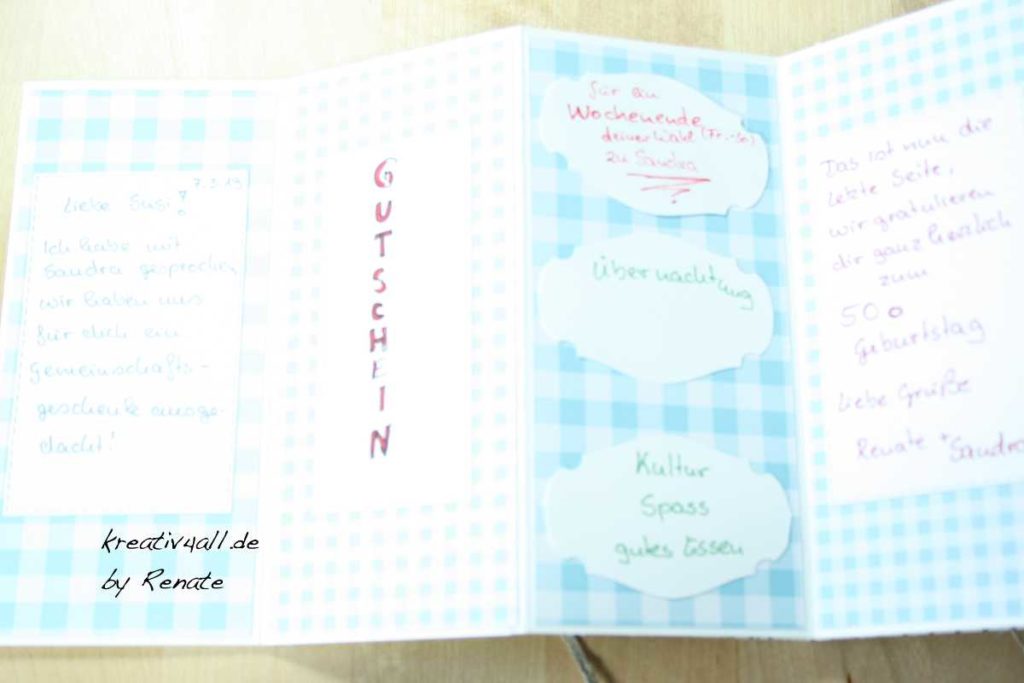 7.3.13
Liebe Susi!
Ich habe mit
Sandra gesprochen
wir haben uns
für dich ein
gemeinschafts-
geschenk ausge-
dacht!
GUTSCHEIN
für ein
Wochenende
deiner Wahl (Fr.-So)
zu Sandra
Übernachtung
Kultur
Spass
gutes Essen
Das ist nun die
letzte Seite,
wir gratulieren
dir ganz herzlich
zum
50.
Geburtstag
Liebe Grüße
Renate + Sandra
kreativ4all.de
by Renate